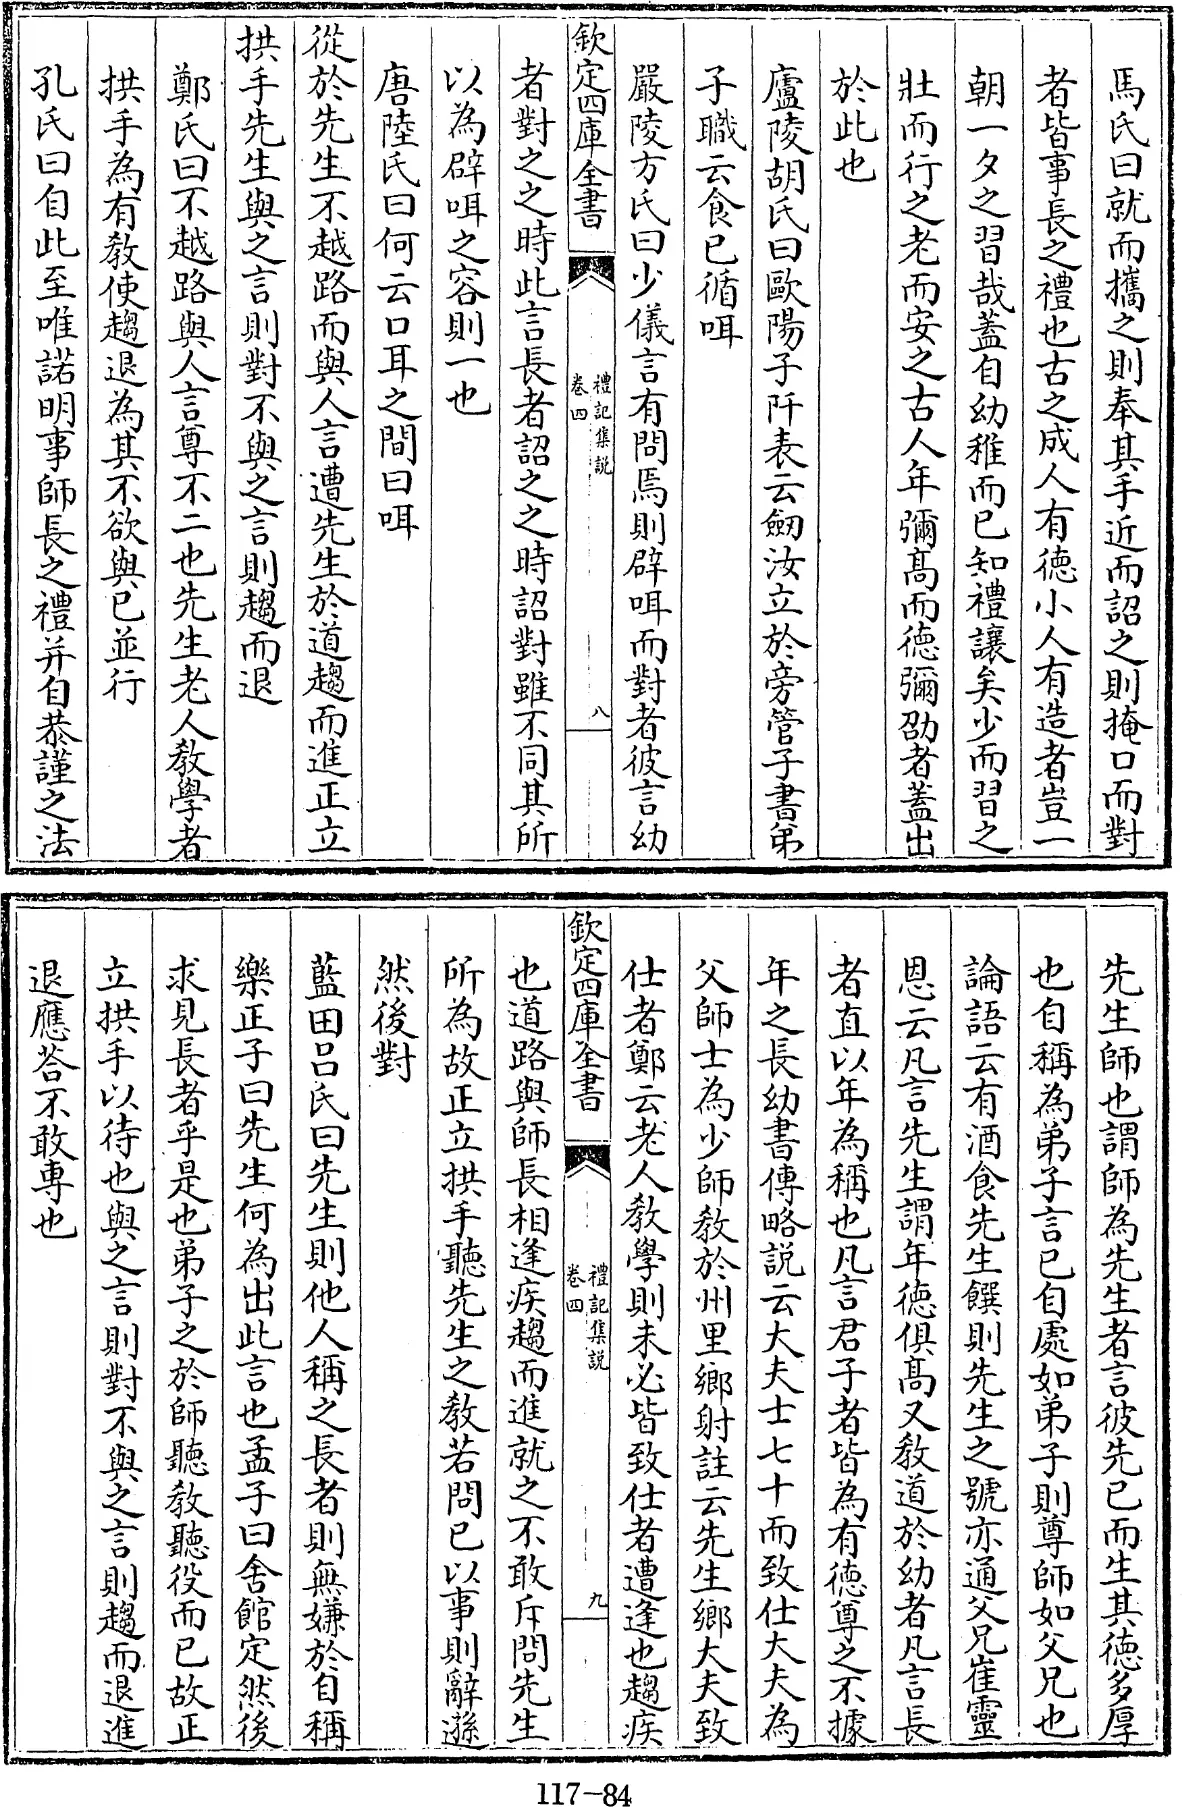 馬氏曰就而攜之則奉其手近而詔之則掩口而對
者皆事長之禮也古之成人有德小人有造者豈一
朝一夕之習哉蓋自幼稚而已知禮讓矣少而習之
壯而行之老而安之古人年彌髙而德彌劭者蓋出
於此也
廬陵胡氏曰歐陽子阡表云劒汝立於旁管子書弟
子職云食已循咡
嚴陵方氏曰少儀言有問焉則辟咡而對者彼言幼
欽定四庫全書
禮記集説
卷四
八
者對之之時此言長者詔之之時詔對雖不同其所
以為辟咡之容則一也
唐陸氏曰何云口耳之間曰咡
從於先生不越路而與人言遭先生於道趨而進正立
拱手先生與之言則對不與之言則趨而退
鄭氏曰不越路與人言尊不二也先生老人教學者
拱手為有教使趨退為其不欲與已並行
孔氏曰自此至唯諾明事師長之禮并自恭謹之法
先生師也謂師為先生者言彼先已而生其德多厚
也自稱為弟子言已自處如弟子則尊師如父兄也
論語云有酒食先生饌則先生之號亦通父兄崔靈
恩云凡言先生謂年德俱髙又教道於幼者凡言長
者直以年為稱也凡言君子者皆為有德尊之不據
年之長幼書傳略説云大夫士七十而致仕大夫為
父師士為少師教於州里鄉射註云先生鄉大夫致
仕者鄭云老人教學則未必皆致仕者遭逢也趨疾
欽定四庫全書
禮記集説
卷四
九
也道路與師長相逢疾趨而進就之不敢斥問先生
所為故正立拱手聽先生之教若問已以事則辭遜
然後對
藍田吕氏曰先生則他人稱之長者則無嫌於自稱
樂正子曰先生何為出此言也孟子曰舍館定然後
求見長者乎是也弟子之於師聽教聽役而已故正
立拱手以待也與之言則對不與之言則趨而退進
退應荅不敢專也
117-84